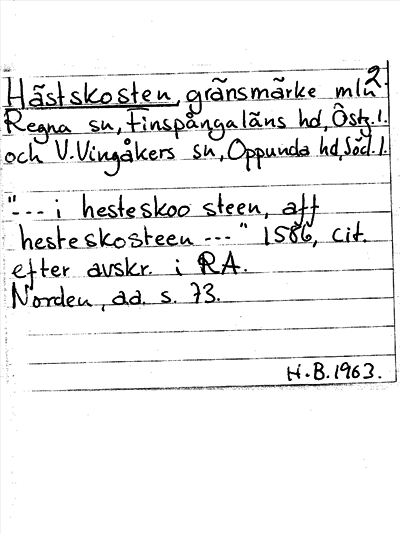 2.
Hästskosten, gränsmärke mln
Regna sn, Finspångaläns hd, Östg. l.
och V. Vingåkers sn, Oppunda hd, Södl. l.
"--- i hesteskoo steen, aff
hesteskosteen ---" 1586, cit.
efter avskr. i RA.
Norden, aa. s. 73.
H.B. 1963.